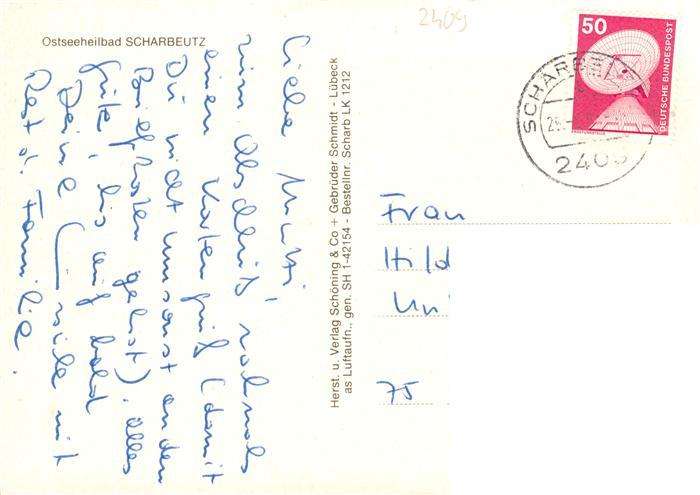 Ostseeheilbad SCHARBEUTZ
Liebe Mutti,
zum Abschluß nochmals
einen Kartengruß (damit
Du nicht umsonst an den
Briefkasten gehst), alles
Gute, bis auf bald
Deine Cousine mit
Rest d. Familie.
Herst. u. Verlag Schöning & Co + Gebrüder Schmidt - Lübeck
as Luftaufn., gen. SH 1-42154 - Bestellnr. Scharb LK 1212
2409
50
DEUTSCHE BUNDESPOST
SCHARBE
2409
Frau
Hild
Uni
75